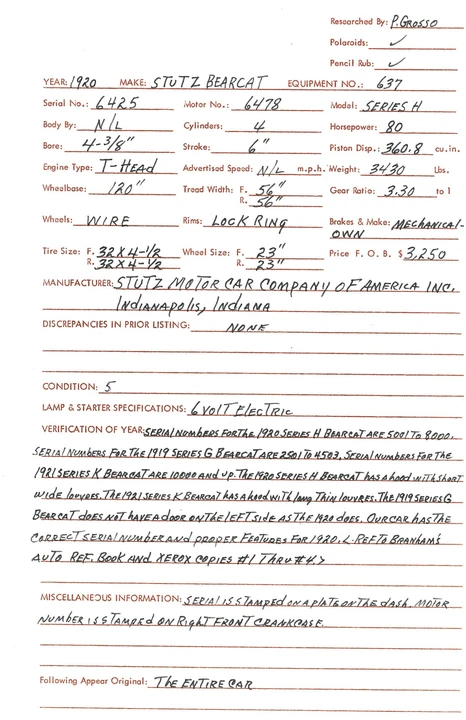 Researched By: P.GROSSO
Polaroids: ✓
Pencil Rub: ✓
YEAR: 1920 MAKE: STUTZ BEARCAT EQUIPMENT NO.: 637
Serial No.: 6425 Motor No.: 6478 Model: SERIES H
Body By: N/L Cylinders: 4 Horsepower: 80
Bore: 4-3/8" Stroke: 6" Piston Disp.: 360.8 cu.in.
Engine Type: T-HEAD Advertised Speed: N/L m.p.h. Weight: 3430 Lbs.
Wheelbase: 120" Tread Width: F. 56" Gear Ratio: 3.30 to 1
R. 56"
Wheels: WIRE Rims: LOCK RING Brakes & Make: MECHANICAL-
OWN
Tire Size: F. 32X4-1/2 Wheel Size: F. 23" Price F. O. B. $ 3,250
R. 32X4-1/2 R. 23"
MANUFACTURER: STUTZ MOTOR CAR COMPANY OF AMERICA INC.
INDIANAPOLIS, INDIANA
DISCREPANCIES IN PRIOR LISTING: NONE
CONDITION: 5
LAMP & STARTER SPECIFICATIONS: 6 VOLT ELECTRIC
VERIFICATION OF YEAR: SERIAL NUMBERS FOR THE 1920 SERIES H BEARCAT ARE 5001 TO 8000.
SERIAL NUMBERS FOR THE 1919 SERIES G BEARCAT ARE 2501 TO 4503. SERIAL NUMBERS FOR THE
1921 SERIES K BEARCAT ARE 10000 AND UP. THE 1920 SERIES H BEARCAT HAS A HOOD WITH SHORT
WIDE LOUVRES. THE 1921 SERIES K BEARCAT HAS A HOOD WITH LONG THIN LOUVRES. THE 1919 SERIES G
BEARCAT DOES NOT HAVE A DOOR ON THE LEFT SIDE AS THE 1920 DOES. OUR CAR HAS THE
CORRECT SERIAL NUMBER AND PROPER FEATURES FOR 1920. <-REF TO BRANHAM'S
AUTO REF. BOOK AND XEROX COPIES #1 THRU #4>
MISCELLANEOUS INFORMATION: SERIAL IS STAMPED ON A PLATE ON THE DASH. MOTOR
NUMBER IS STAMPED ON RIGHT FRONT CRANKCASE.
Following Appear Original: THE ENTIRE CAR